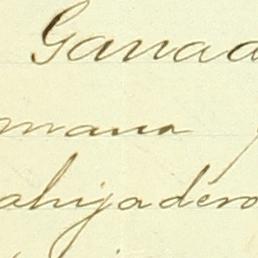 Ganad
mana
ahijadero